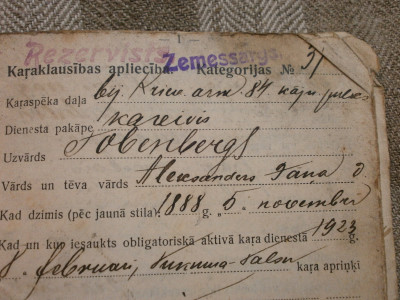 Rezervists Zemessargs.
Kaŗaklausības apliecība Kategorijas № 31
Kaŗaspēka daļa bij. Kriev. arm. 84. kājn. pulks
Dienesta pakāpe kareivis
Uzvārds Tobenbergs
Vārds un tēva vārds Aleksanders Jāņa d.
Kad dzimis (pēc jaunā stila) 1888 g. „5. novembrī
Kad un kur iesaukts obligatoriskā aktivā kaŗa dienestā 1923 g.
februarī, Tukuma-Talsu kaŗa apriņķī